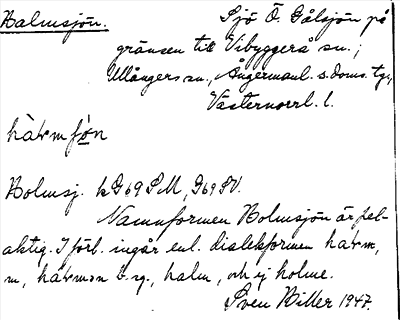 Halmsjön. Sjö Ö. Gålsjön på
gränsen till Vibyggerå sn.;
Ullångers sn., Ångermanl. s. doms. tg.,
Västernorrl. l.
Holmsj. kG69SM, G69SV.
Namnformen Holmsjön är fel-
aktig. I förb. ingår enl. dialektformen
m, b. sg., halm, och ej holme.
Sven Hiller 1947.